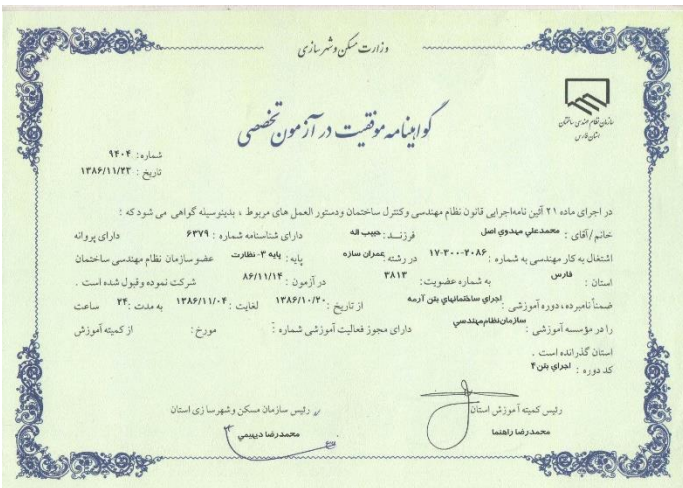 وزارت مسکن و شهرسازی
سازمان نظام مهندسی ساختمان
استان فارس
گواهینامه موفقیت در آزمون تخصصی
شماره : ۹۴۰۴
تاریخ : ۱۳۸۶/۱۱/۲۲
در اجرای ماده ۲۱ آئین نامه‌اجرایی قانون نظام مهندسی وکنترل ساختمان ودستور العمل های مربوط ، بدینوسیله گواهی می شود که :
خانم/آقای : محمدعلي مهدوي اصل فرزنــد : حبیب اله دارای شناسنامه شماره : ۶۳۷۹ دارای پروانه
اشتغال به کار مهندسی به شماره : ۱۷-۳۰۰-۲۰۸۶ در رشته : عمران سازه پایه : پایه ۳- نظارت عضو سازمان نظام مهندسی ساختمان
استان : فارس به شماره عضویت : ۳۸۱۳ در آزمون : ۸۶/۱۱/۱۴ شرکت نموده وقبول شده است .
ضمناً نامبرده ، دوره آموزشی : اجراي ساختمانهاي بتن آرمه از تاریخ : ۱۳۸۶/۱۰/۲۰ لغایت : ۱۳۸۶/۱۱/۰۴ به مدت : ۲۴ ساعت
را در مؤسسه آموزشی : سازمان‌نظام‌مهندسي دارای مجوز فعالیت آموزشی شماره : مورخ : از کمیته آموزش
استان گذرانده است .
کد دوره : اجراي بتن۴
رئیس کمیته آموزش استان
محمدرضا راهنما
رئیس سازمان مسکن وشهرسازی استان
محمدرضا دیهیمي